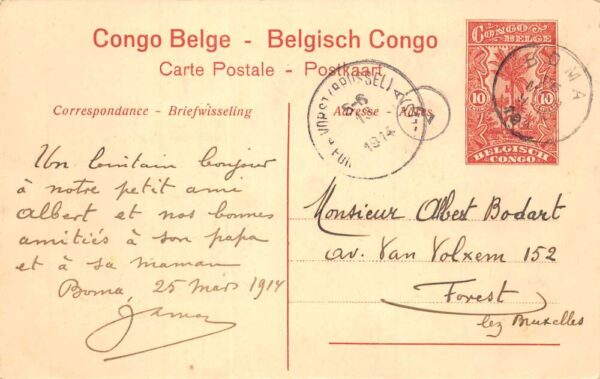 Congo Belge - Belgisch Congo
Carte Postale - Postkaart
Correspondance - Briefwisseling
Adresse - Adres
CONGO BELGE
10 10
BELGISCH CONGO
BOMA
1914
Un lointain bonjour
à notre petit ami
Albert et nos bonnes
amitiés à son papa
et à sa maman
Boma, 25 Mars 1914
Monsieur Albert Bodart
av. Van Volxem 152
Forest
lez Bruxelles